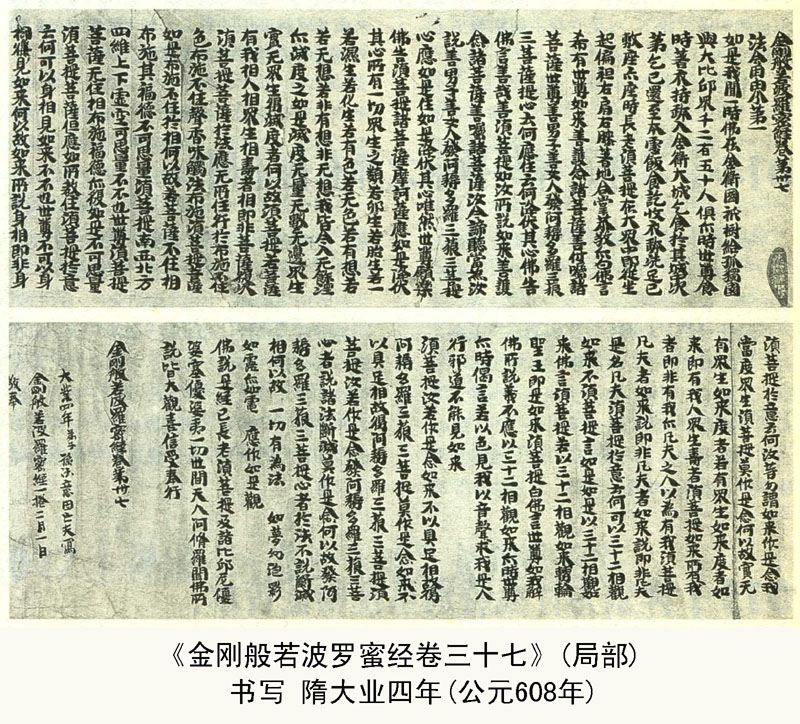 金剛般若波羅蜜經卷第卅七
法會由尒第一
如是我聞一時佛在舍衛國祇樹給孤獨園
與大比丘眾千二百五十人俱尒時世尊食
時著衣持鉢入舍衛大城乞食於其城次
第乞已還至本處飯食訖收衣鉢洗足已
敷座尒時長老須菩提在大眾中即從坐
起偏袒右肩右膝著地合掌恭敬而白佛言
希有世尊如來善護念諸菩薩善付囑諸
菩薩世尊善男子善女人發阿耨多羅三藐
三菩提心云何應住云何降伏其心佛告
佛言善哉善哉須菩提如汝所說如來善護
念諸菩薩善付囑諸菩薩汝今諦聽當為汝
說善男子善女人發阿耨多羅三藐三菩提
心應如是住如是降伏其心唯然世尊願樂
佛告須菩提諸菩薩摩訶薩應如是降伏
其心所有一切眾生之類若卵生若胎生
若濕生若化生若有色若无色若有想
若无想若非有想非无想我皆令入无餘
而滅度之如是滅度无量无數无邊眾生
實无眾生得滅度者何以故須菩提菩薩
有我相人相眾生相壽者相即非菩薩復次
須菩提菩薩於法應无所住行於布施不住
色布施不住聲香味觸法布施須菩提菩薩
如是布施不住於相何以故若菩薩不住相
布施其福德不可思量須菩提南西北方
四維上下虛空可思量不不也世尊須菩提
菩薩无住相布施福德亦復如是不可思量
須菩提菩薩但應如所教住須菩提於意
云何可以身相見如來不不也世尊不可以身
相得見如來何以故如來所說身相即非身
須菩提於意云何汝等勿謂如來作是念我
當度眾生須菩提莫作是念何以故實无
有眾生如來度者若有眾生如來度者如
來即有我人眾生壽者須菩提如來所說有我
者即非有我而凡夫之人以為有我須菩提
凡夫者如來說即非凡夫者如來說即非凡夫
是名凡夫須菩提於意云何可以三十二相觀
如來不須菩提言如是如是以三十二相觀如
來佛言須菩提若以三十二相觀如來轉輪
聖王即是如來須菩提白佛言世尊如我解
佛所說義不應以三十二相觀如來尒時世尊
尒時偈言若以色見我以音聲求我是人
行邪道不能見如來
須菩提汝若作是念如來不以具足相故得
阿耨多羅三藐三菩提莫作是念如來不
以具足相故得阿耨多羅三藐三菩提須
菩提汝若作是念發阿耨多羅三藐三菩
心者說諸法斷滅莫作是念何以故發阿
耨多羅三藐三菩提心者於法不說斷滅
相何以故 一切有為法 如夢幻泡影
如露亦如電 應作如是觀
佛說是經已長老須菩提及諸比丘尼優
婆塞優婆夷一切世間天人阿脩羅聞佛所
說皆大歡喜信受奉行
金剛般若波羅蜜經卷第卅七
大業四年
金剛般若波羅蜜經一卷二月一日
敬奉
《金刚般若波罗蜜经卷三十七》(局部)
书写 隋大业四年(公元608年)